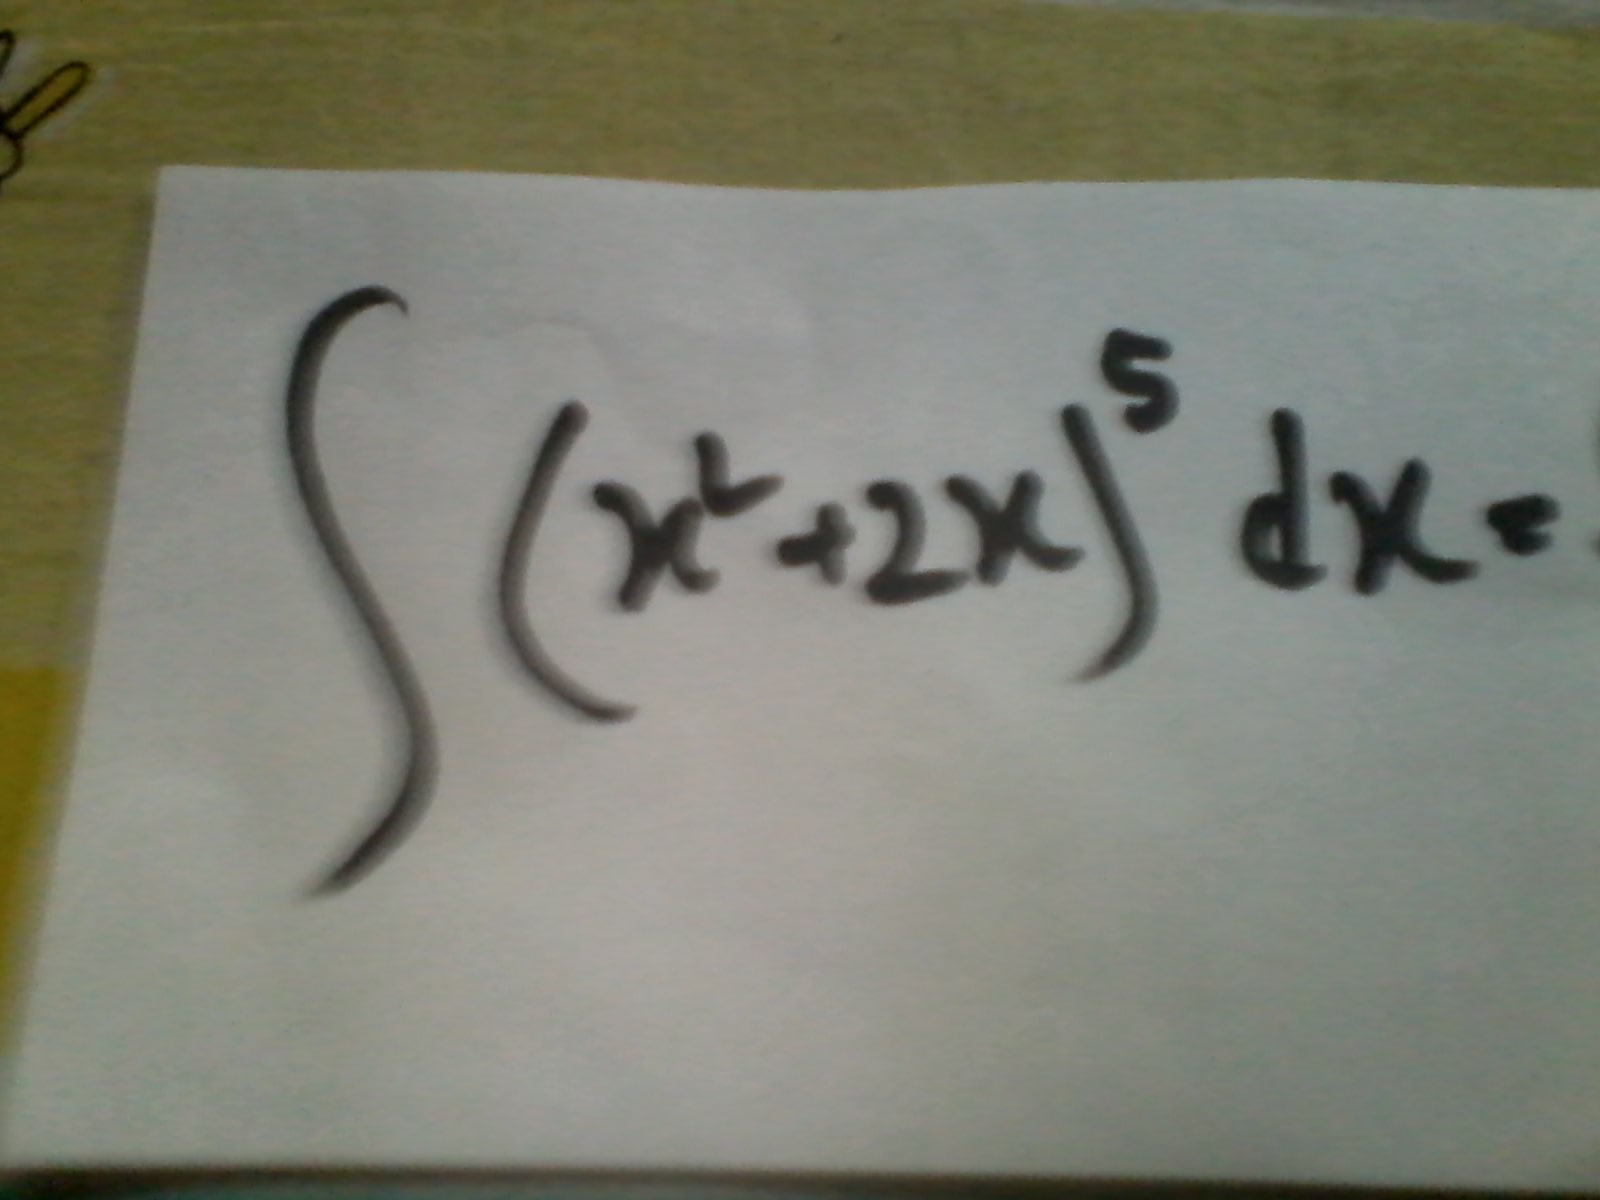 ∫(x²+2x)⁵ dx =